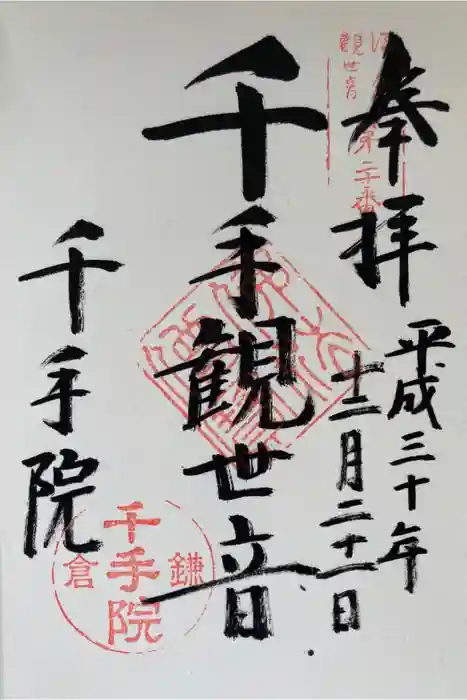 奉拝
平成三十年
十二月二十一日
千手観世音
千手院
観世音
第二十番
鎌倉
千手院